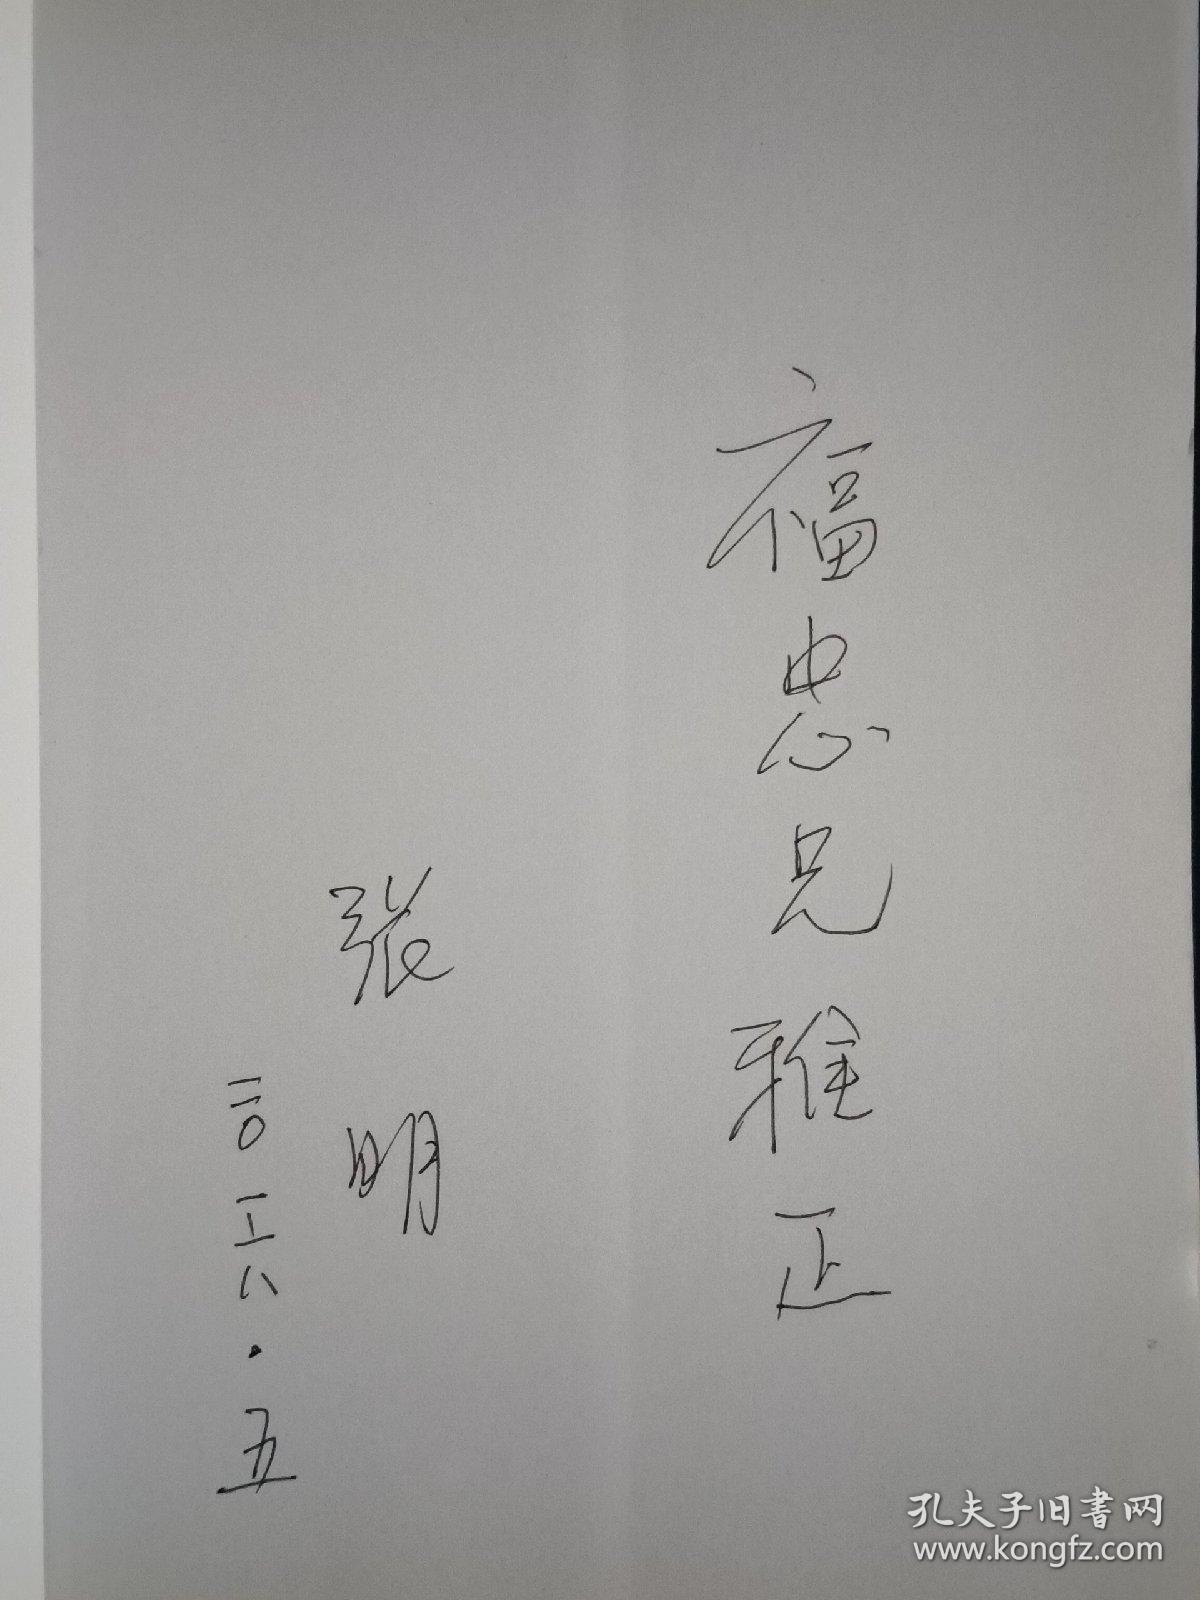 福忠兄雅正
张明
二〇一六·五
孔夫子旧書网
www.kongfz.com